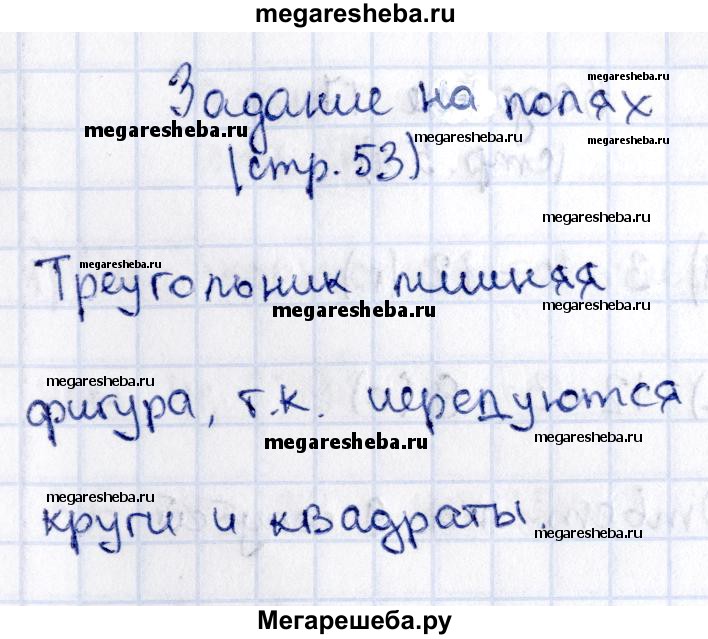 megaresheba.ru
megaresheba.ru
Задание на полях
megaresheba.ru
megaresheba.ru
megaresheba.ru
(стр. 53)
megaresheba.ru
megaresheba.ru
Треугольник лишняя
megaresheba.ru
megaresheba.ru
megaresheba.ru
фигура, т.к. чередуются
megaresheba.ru
megaresheba.ru
megaresheba.ru
круги и квадраты.
megaresheba.ru
Мегарешеба.ру